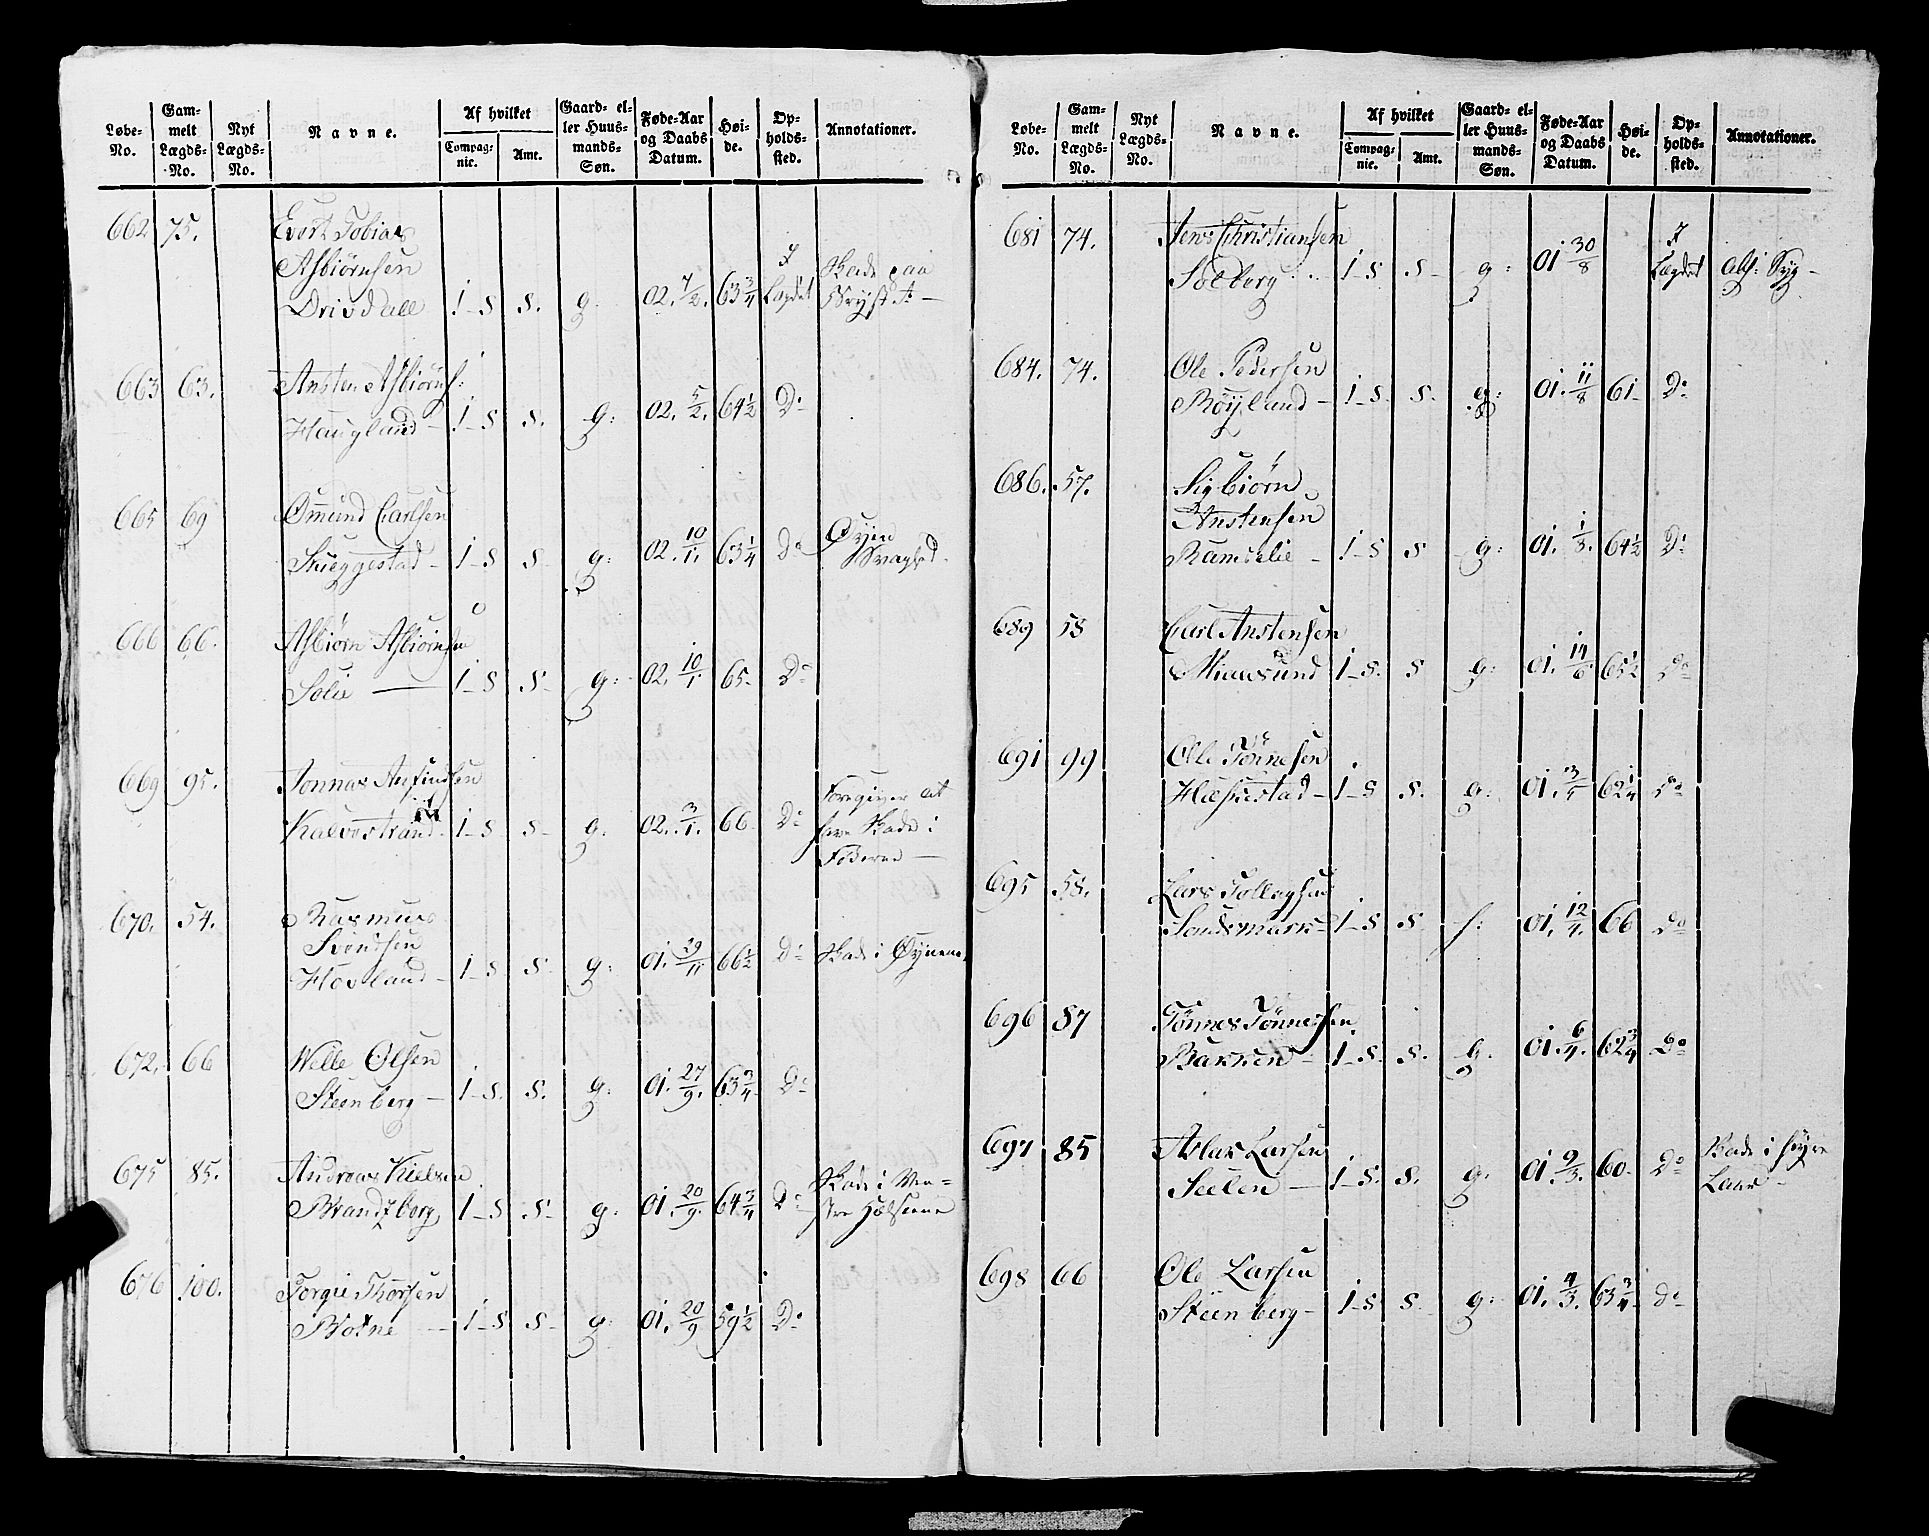 Løbe-No. Gam-melt Lægds-No. Nyt Lægds-No. Navne. Af hvilket Compag-nie. Amt. Gaard- el-ler Huus-mands-Søn. Føde-Aar og Daabs Datum. Høi-de. Op-holds-sted. Annotationer.
662 75. Evert Tobias
Asbiörnsen
Drivdall 1-s s. g. 02. 7/2. 63 3/4 I Lægdet Skade paa Brystet -
663 63. Ansten Asbiörns:
Haugland - 1-s s. g: 02. 5/2. 64 1/2 Do
665 69 Ømund Carlsen
Skieggestad - 1-s s. g: 02. 10/1. 63 1/4 Do Øyen Svaghed.
666 66. Asbiörn Asbiörnsen
Solie - 1-s s. g: 02. 10/1 65. Do
669 95. Jonnas Anfindsen
Kalvestrand 1-s s. g. 02. 3/1. 66 Do Foregiver at have Skade i Födderne -
670. 54. Rasmus
Svendsen
Hovland - 1-s s. g: 01. 29/11 66 1/2 Do Skade i Øynene.
672. 66 Welle Olsen
Steenberg - 1-s. s. g: 01. 27/9. 63 3/4 Do
675 85. Andreas Nielsen
Brandtzberg 1-s s. g: 01. 20/9. 64 3/4 Do Skade i Ven-stre
676 100. Torgie Thorsen
Botne - 1-s s. g: 01. 20/9 59 1/2 Do
Løbe-No. Gam-melt Lægds-No. Nyt Lægds-No. Navne. Af hvilket Compag-nie. Amt. Gaard- el-ler Huus-mands-Søn. Føde-Aar og Daabs Datum. Høi-de. Op-holds-sted. Annotationer.
681 74. Jens Christiansen
Solberg 1-s s. g: 01 30/8 I Lægdet abs: Syg -
684. 74. Ole Pedersen
Röyland - 1-s. s. g: 01. 11/8 61 - Do
686. 57. Sigbiörn
Anstensen
Ramslie - 1-s s g: 01. 1/8. 64 1/2 Do
689 58 Carl Anstensen
Miawsund 1-s. s g: 01. 14/6 65 1/2 Do
691 99 Ole Tönnesen
Hæhestad - 1-s s. g: 01. 13/5 62 1/4 Do
695 58. Lars Tollaghsen
Sandsmark - 1-s s. f: 01. 12/4. 66 Do
696 87 Tönnes Tönnessen
Bakken - 1-s. s. g: 01. 6/4. 62 3/4 Do
697 85 Aslak Larsen
Seelen - 1-s. s. g. 01. 9/3. 60. Do Skade i höyre Laar -
698 66 Ole Larsen
Steenberg - 1-s s. g: 01. 4/3. 63 3/4 do